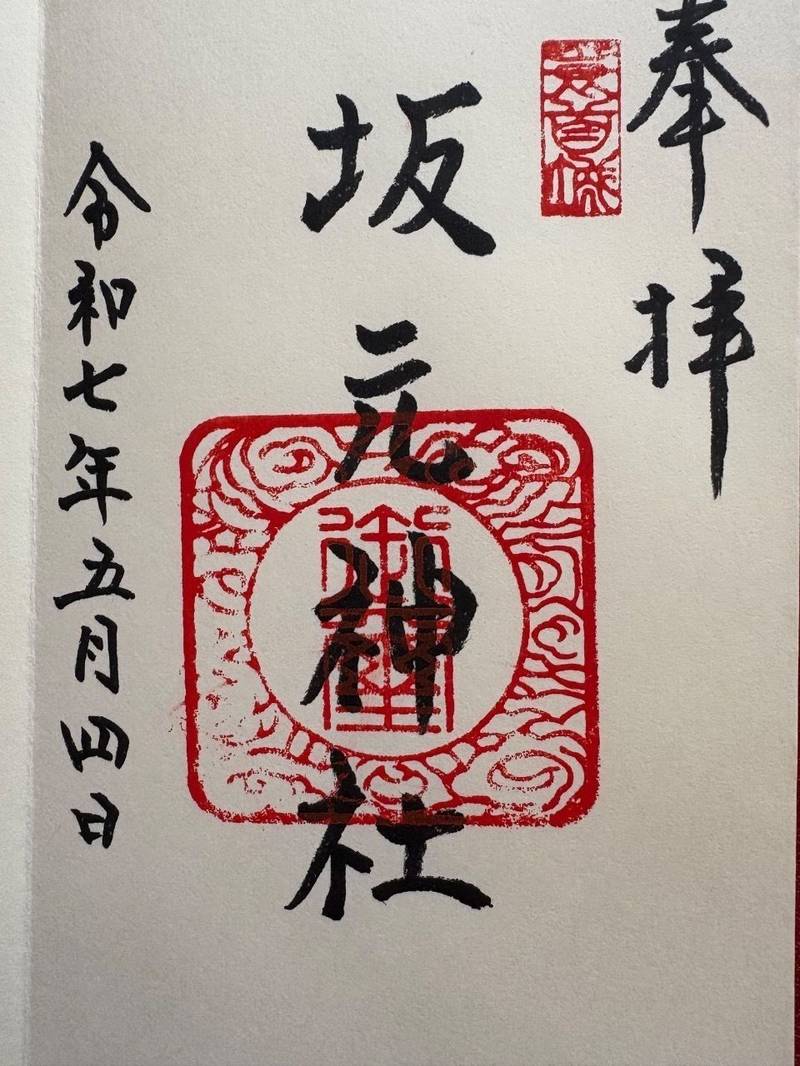 奉拝
坂元神社
令和七年五月四日